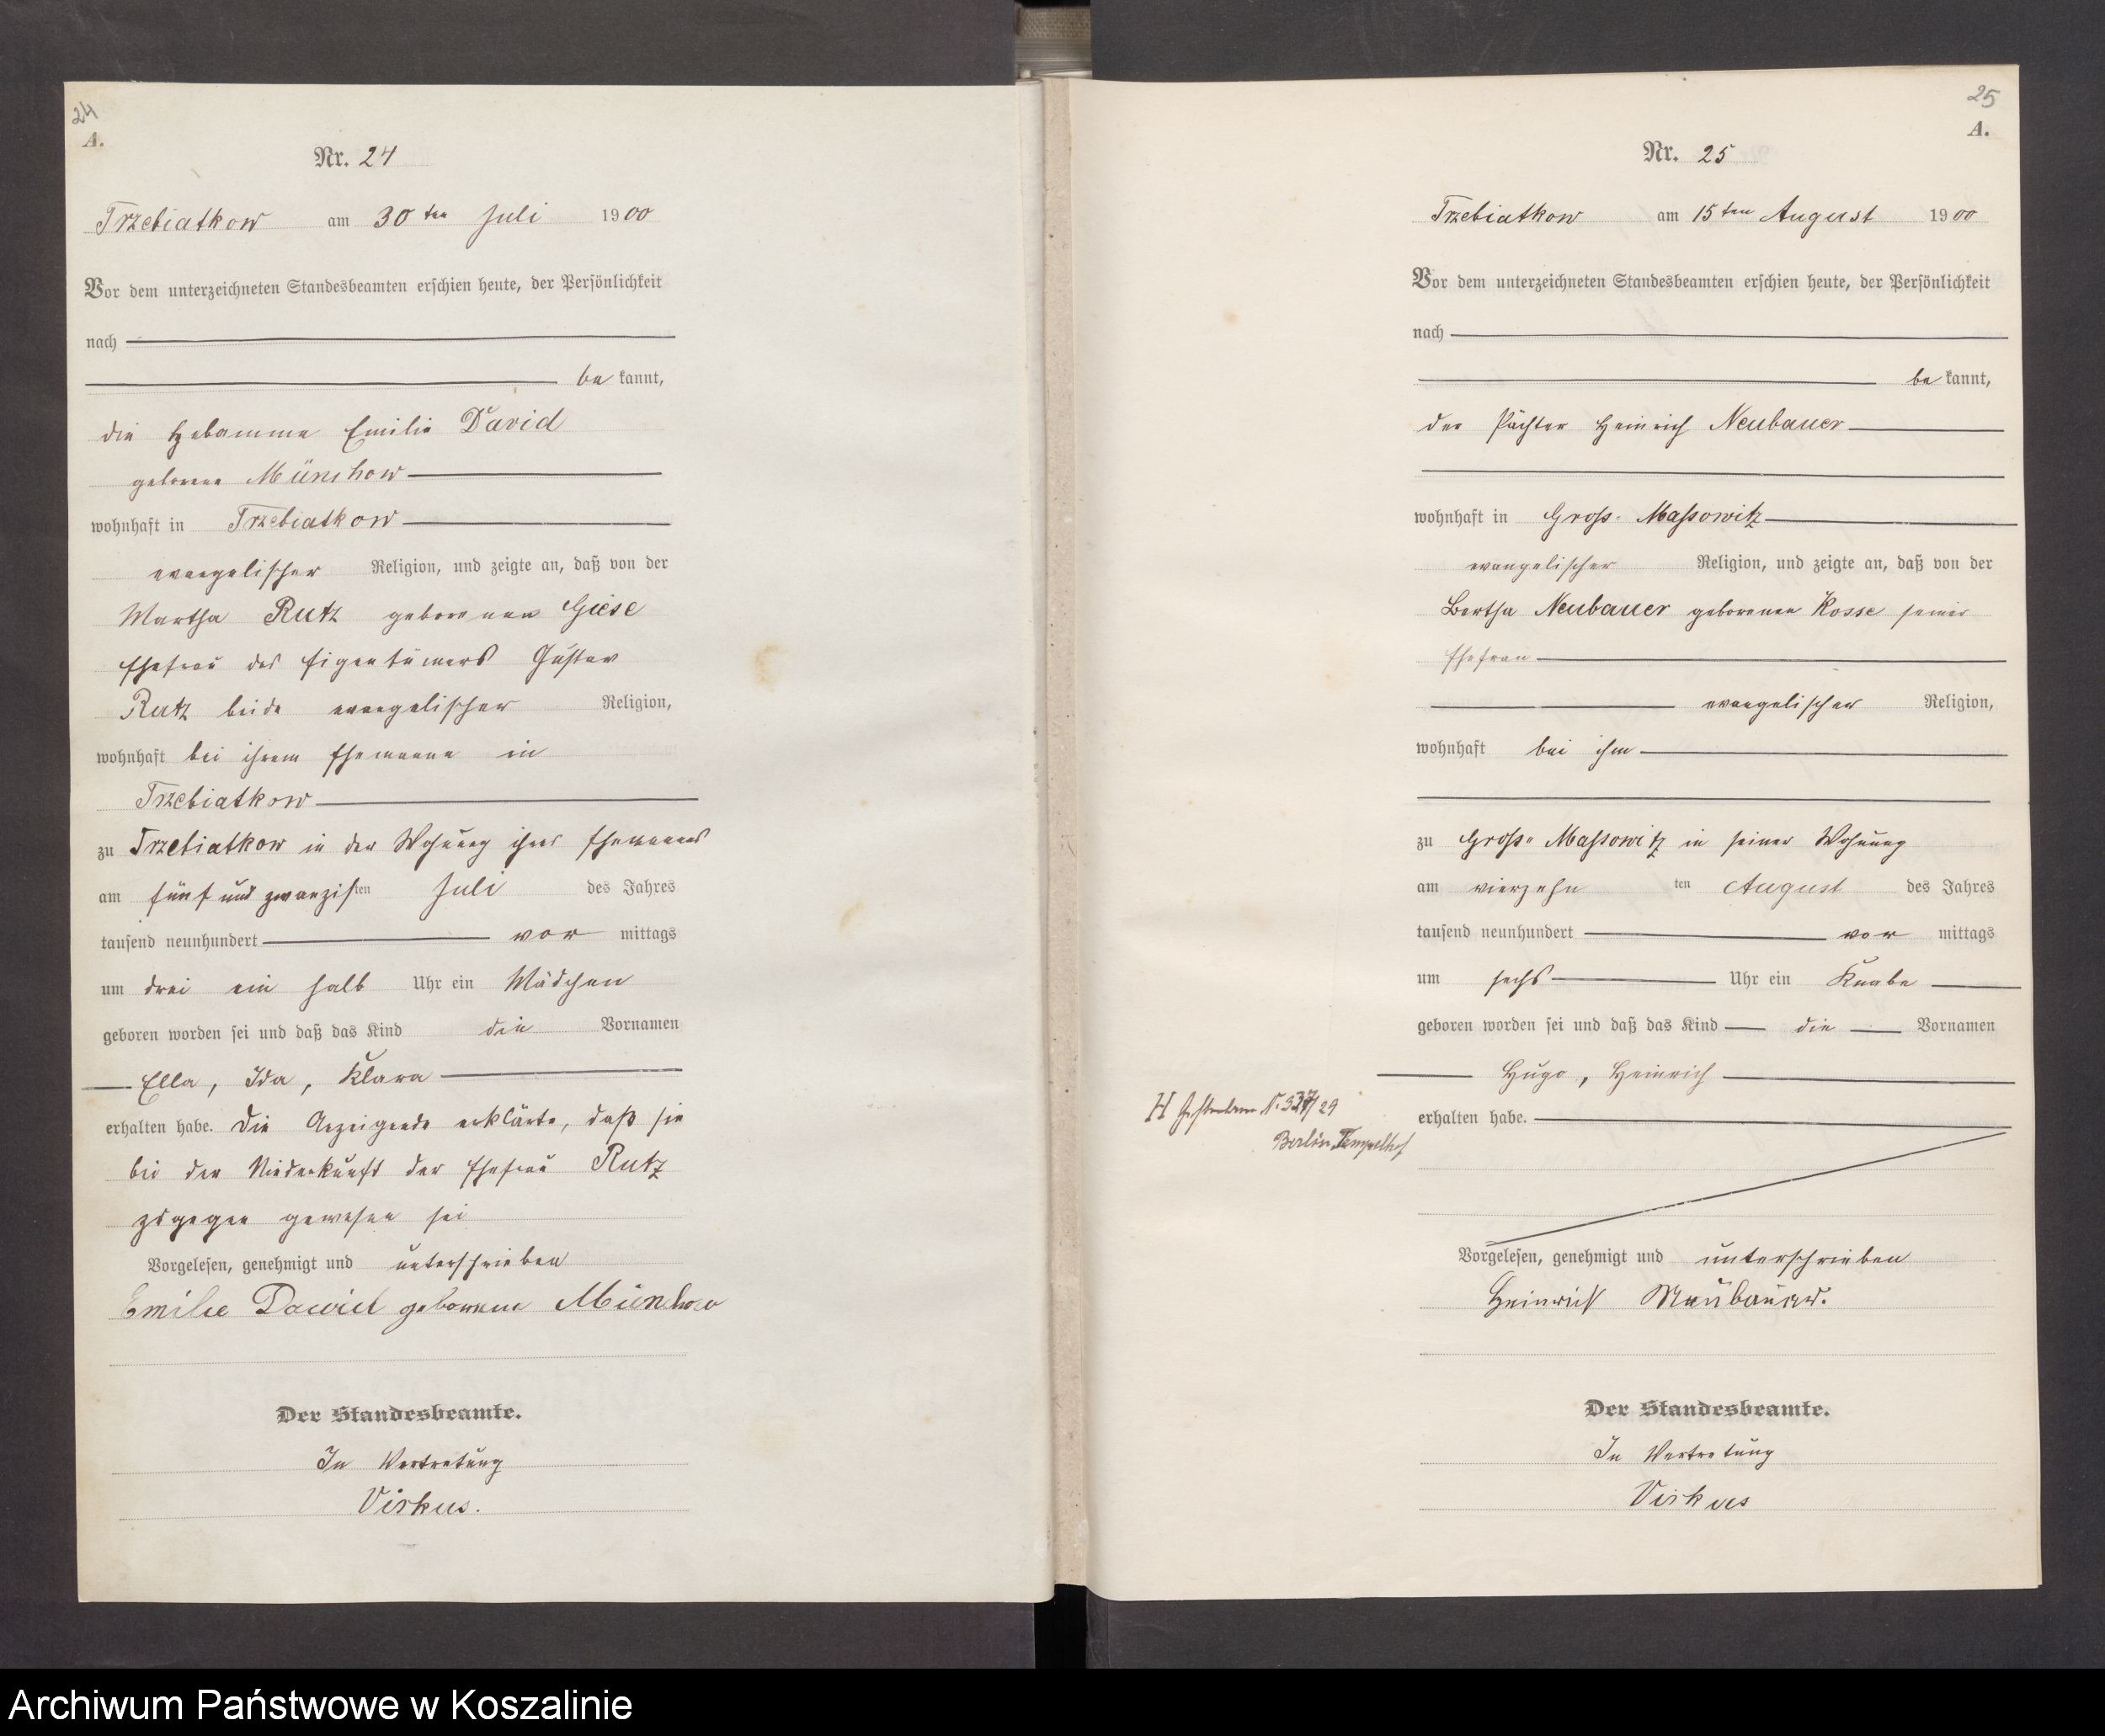 24
A.
Nr. 24
Trzebiatkow am 30ten Juli 1900
Vor dem unterzeichneten Standesbeamten erschien heute, der Persönlichkeit
nach
be kannt,
die Hebamme Emilie David
geborene Münchow
wohnhaft in Trzebiatkow
evangelischer Religion, und zeigte an, daß von der
Martha Rutz geborenen Giese
Ehefrau des Eigentümers Gustav
Rutz beide evangelischer Religion,
wohnhaft bei ihrem Ehemanne in
Trzebiatkow
zu Trzebiatkow in der Wohnung ihres Ehemannes
am fünf und zwanzigsten Juli des Jahres
tausend neunhundert vor mittags
um drei ein halb Uhr ein Mädchen
geboren worden sei und daß das Kind die Vornamen
Ella, Ida, Klara
erhalten habe. Die Anzeigende erklärte, daß sie
bei der Niederkunft der Ehefrau Rutz
zugegen gewesen sei
Vorgelesen, genehmigt und unterschrieben
Emilie David geborene Münchow
Der Standesbeamte.
In Vertretung
Virkus.
25
A.
Nr. 25
Trzebiatkow am 15ten August 1900
Vor dem unterzeichneten Standesbeamten erschien heute, der Persönlichkeit
nach
be kannt,
der Pächter Heinrich Neubauer
wohnhaft in Gross-Massowitz
evangelischer Religion, und zeigte an, daß von der
Bertha Neubauer geborenen Kosse seiner
Ehefrau
evangelischer Religion,
wohnhaft bei ihm
zu Gross-Massowitz in seiner Wohnung
am vierzehn ten August des Jahres
tausend neunhundert vor mittags
um sechs Uhr ein Knabe
geboren worden sei und daß das Kind die Vornamen
Hugo, Heinrich
H Gestorben N. /29
Berlin Tempelhof
erhalten habe.
Vorgelesen, genehmigt und unterschrieben
Heinrich Neubauer.
Der Standesbeamte.
In Vertretung
Virkus
Archiwum Państwowe w Koszalinie